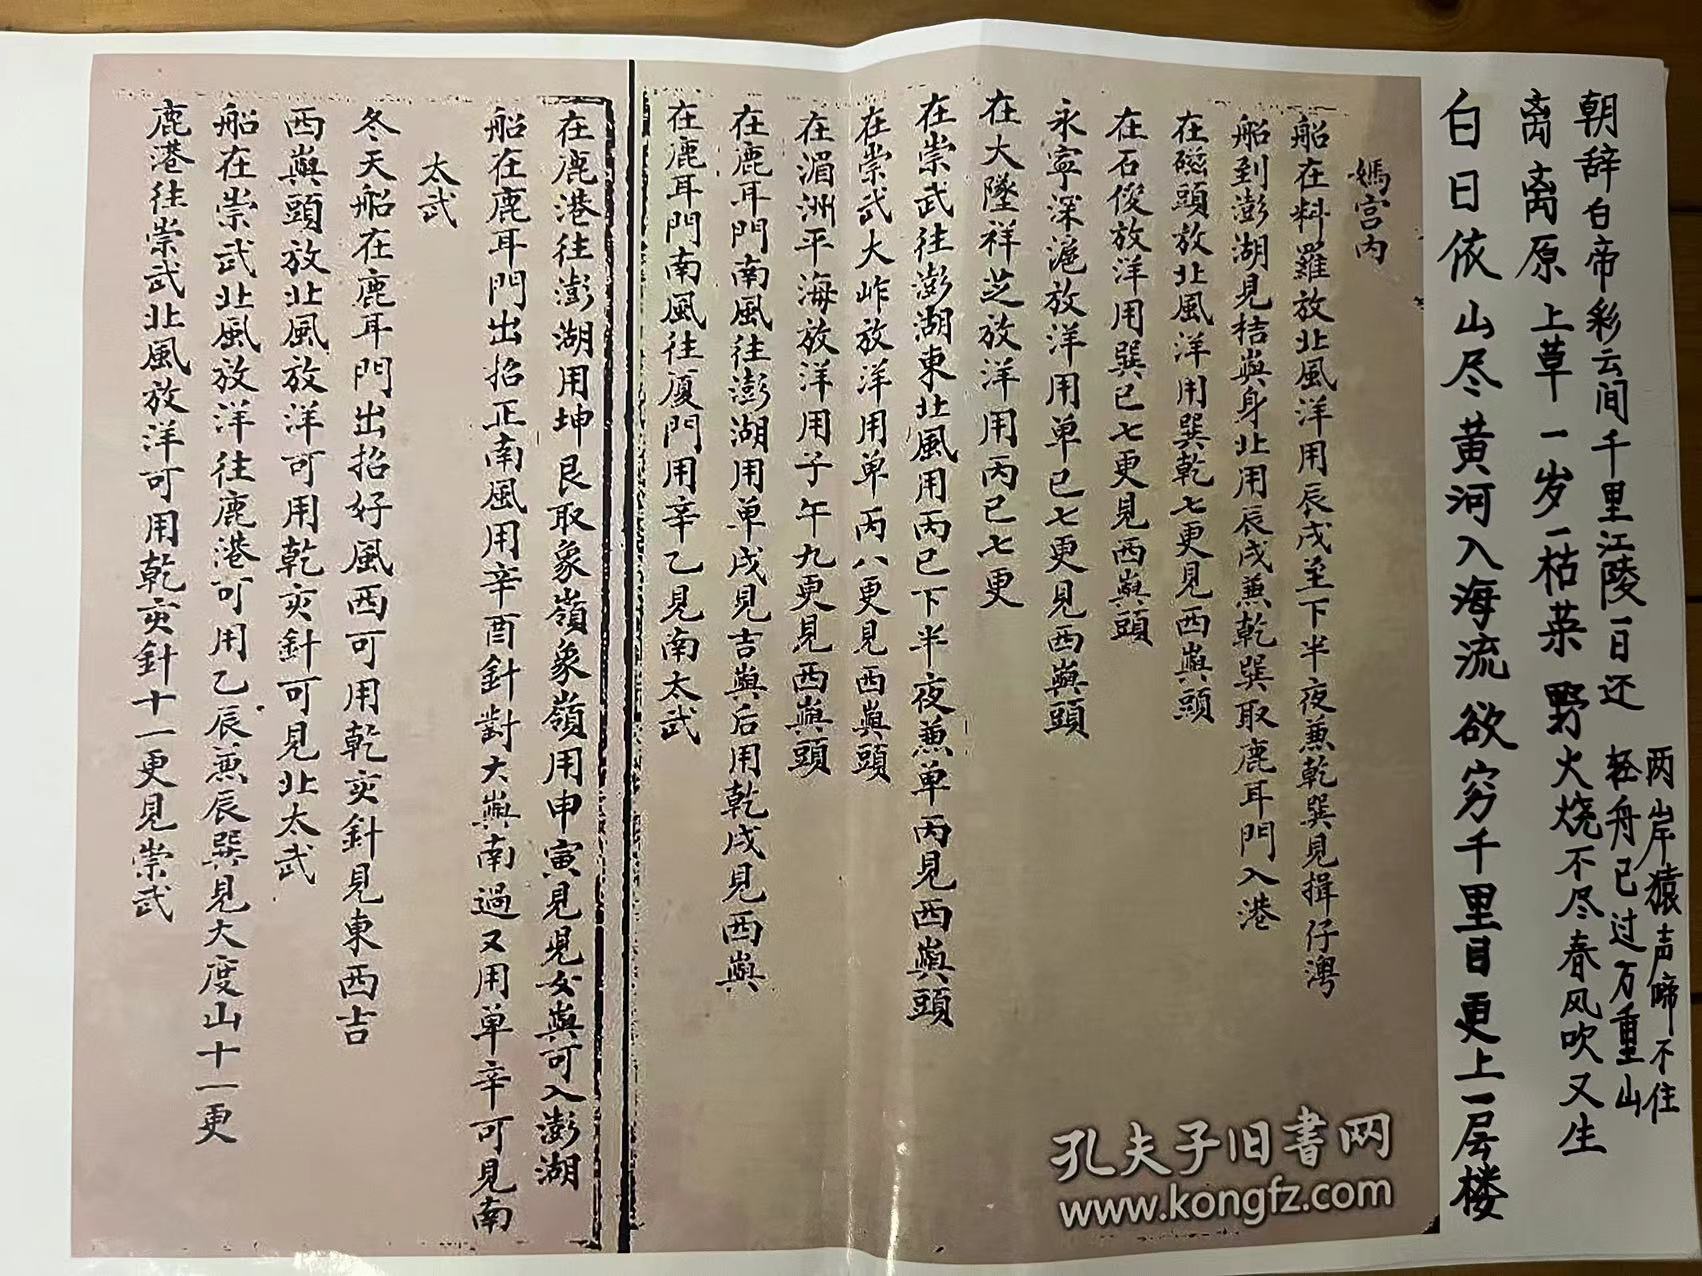 朝辞白帝彩云间千里江陵一日还
两岸猿声啼不住
轻舟已过万重山
离离原上草一岁一枯荣野火烧不尽春风吹又生
白日依山尽黄河入海流欲穷千里目更上一层楼
媽宫内
船在料羅放北風洋用辰戌至下半夜兼乾巽見揖仔灣
船到澎湖見桔與身北用辰戌兼乾巽取鹿耳門入港
在磁頭放北風洋用巽乾七更見西與頭
在石俊放洋用巽巳七更見西與頭
永寧深滬放洋用单巳七更見西與頭
在大墜祥芝放洋用丙巳七更
在崇武往澎湖東北風用丙巳下半夜兼单丙見西與頭
在崇武大岞放洋用单丙八更見西與頭
在湄洲平海放洋用子午九更見西與頭
在鹿耳門南風往澎湖用单戌見吉與后用乾戌見西與
在鹿耳門南風往厦門用辛乙見南太武
在鹿港往澎湖用坤艮取象嶺象嶺用申寅見見女與可入澎湖
船在鹿耳門出招正南風用辛酉針對大與南過又用单辛可見南
太武
冬天船在鹿耳門出招好風西可用乾亥針見東西吉
西與頭放北風放洋可用乾亥針可見北太武
船在崇武北風放洋往鹿港可用乙辰兼辰巽見大度山十一更
鹿港往崇武北風放洋可用乾亥針十一更見崇武
孔夫子旧書网
www.kongfz.com